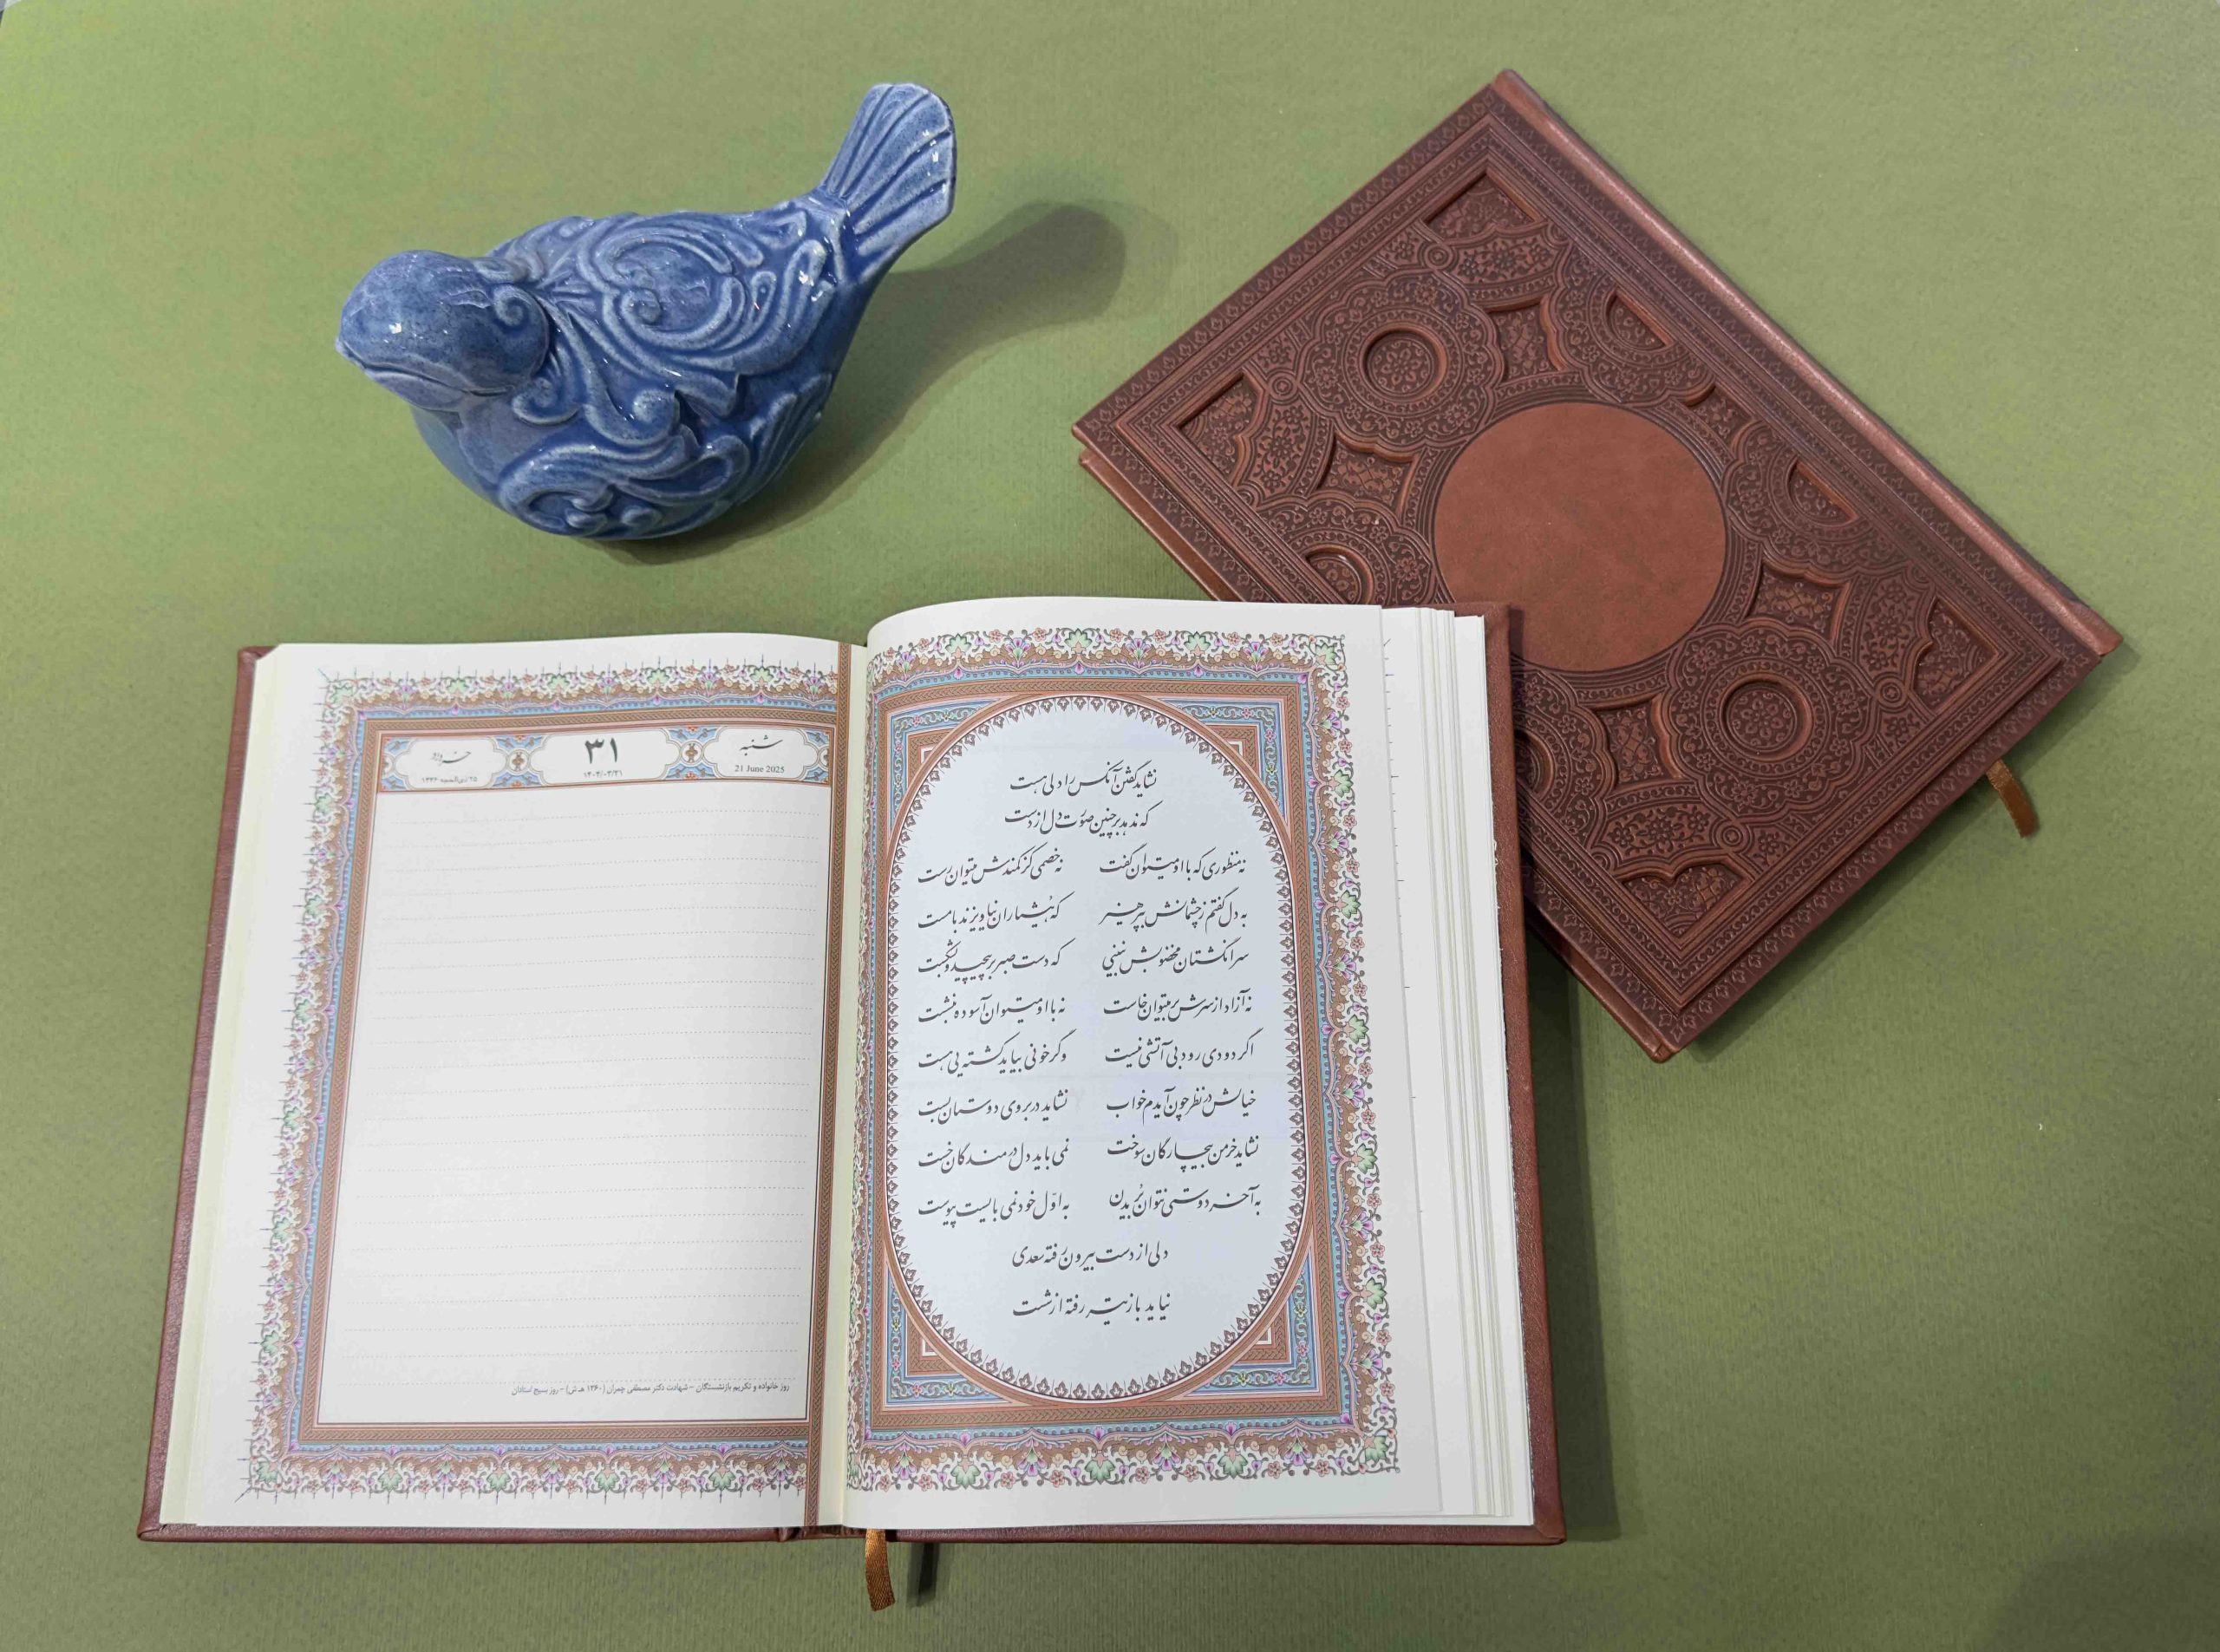 نشاید گفتن آنکس را دلی هست
که ندهد بر چنین صورت دل از دست
نه منظوری که با او میتوان گفت نه خصمی کز کمندش میتوان رست
به دل گفتم ز چشمانش بپرهیز که هشیاران نیاویزند با مست
سرانگشتان مخضوبش نبینی که دست صبر برپیچید و بشکست
نه آزاد از سرش بر میتوان خاست نه با او میتوان آسوده بنشست
اگر دودی رود بی آتشی نیست وگر خونی بیاید کشته یی هست
خیالش در نظر چون آیدم خواب نشاید در بروی دوستان بست
نشاید خرمن بیچارگان سوخت نمی باید دل درمندگان خست
به آخر دوستی نتوان بُریدن به اوّل خود نمی بایست پیوست
دلی از دست بیرون رفته سعدی
نیاید باز تیر رفته از شست
شنبه ۳۱ خرداد
21 June 2025 ۱۴۰۴/۰۳/۳۱ ۲۵ ذی‌الحجه ۱۴۴۶
روز خانواده و تکریم بازنشستگان - شهادت دکتر مصطفی چمران (۱۳۶۰ هـ ش) - روز بسیج استادان